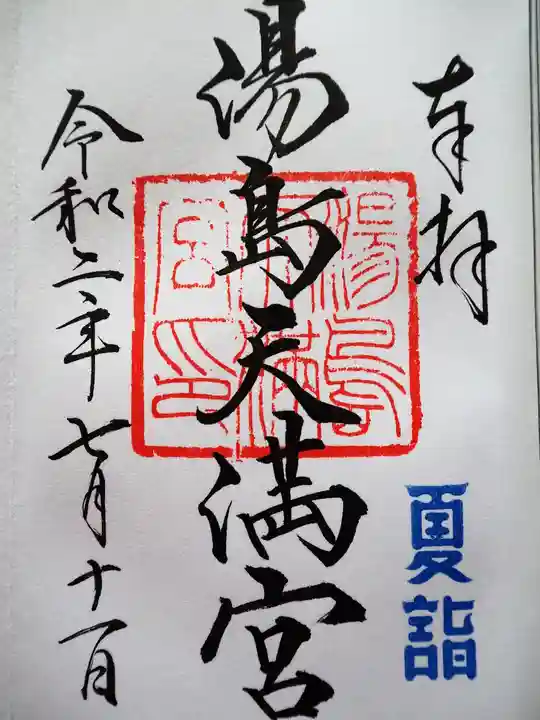 奉拝
夏詣
湯島天満宮
湯島天満宮印
令和二年七月十一日